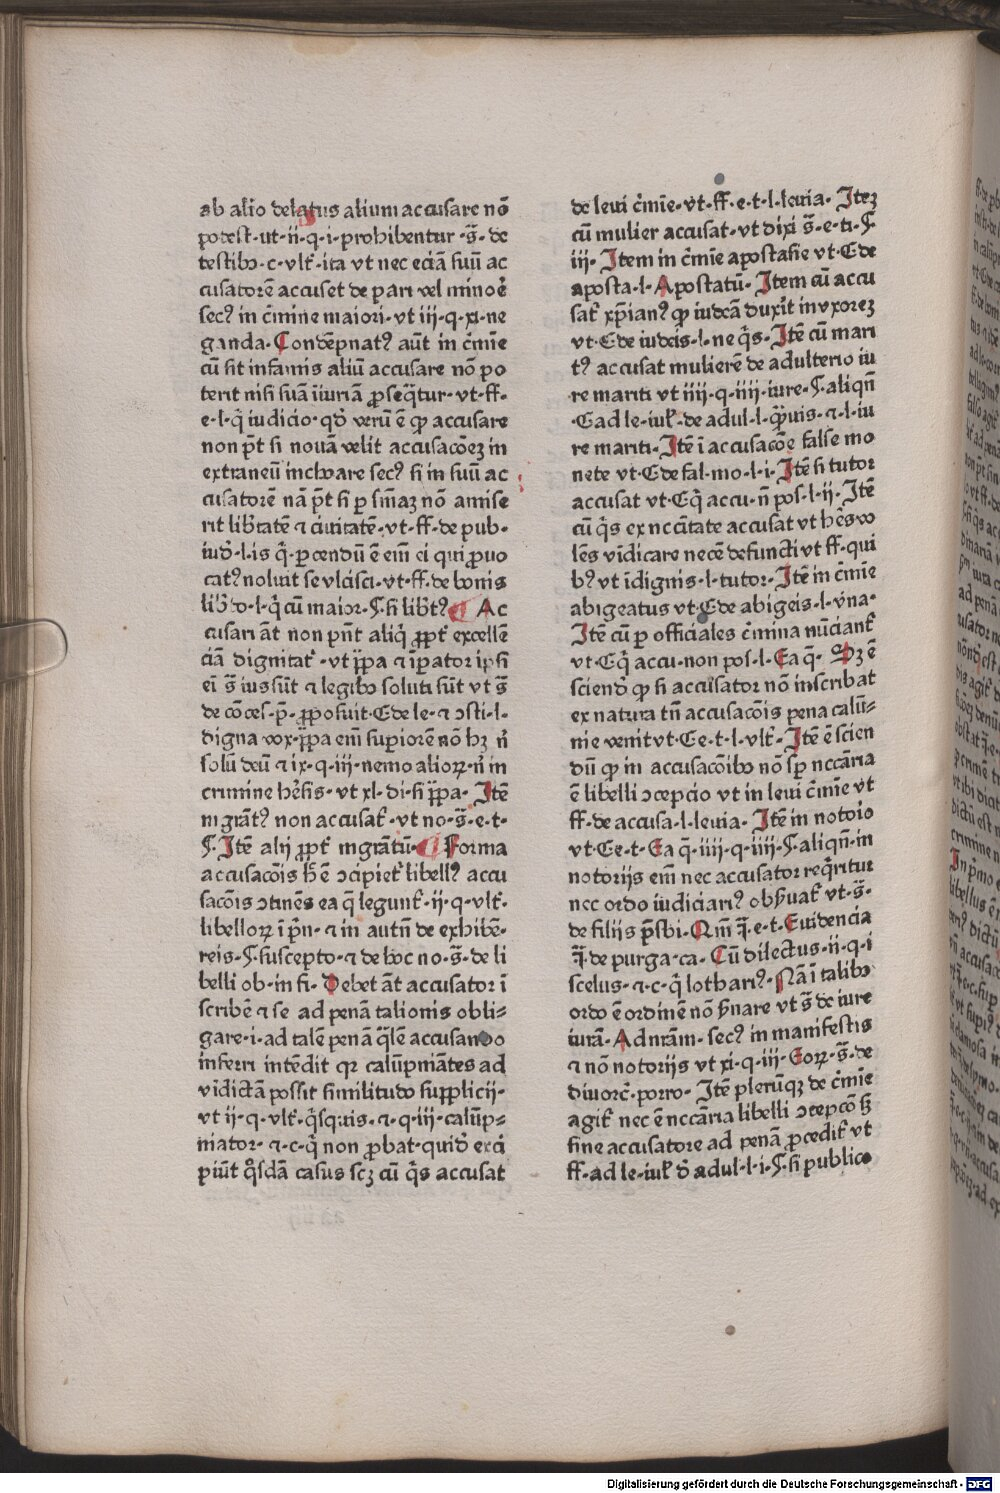 ab alio delatus alium accusare nō
potest·ut·ii·q·i·prohibentur·s̄·de
testibꝰ·c·vlt̄·ita vt nec eciā suū ac
cusatorē accuset de pari vel minorē
secꝰ in c̄mine maiori·vt iij·q·xi·ne
ganda·Condēpnatꝰ aūt in c̄mīe
cū sit infamis aliū accusare nō po
terit nisi suā īiuriā ꝓseq̄tur·vt·ff·
e·l·q̄ iudicio·qđ verū ē ꝙ accusare
non p̄t si nouā velit accusacōeꝫ in
extraneū inchoare secꝰ si in suū ac
cusatorē nā p̄t si ꝑ sniaꝫ nō amise
rit lib̄tatē ⁊ ciuitatē·vt·ff·de pub·
iuđ·l·is q̄·ꝑcendū ē eīm ei qui ꝓuo
catꝰ noluit se vlcisci·vt·ff·de bonis
lib̄oꝝ·l·q̄ cū maior·§·si lib̄tꝰ Ac
cusari āt non pn̄t aliq̄ ꝓpt̄ excellē
ciā dignitat̄·vt p̄pa ⁊ īpator ipsi
eī s̄ ius sūt ⁊ legibꝰ soluti sūt vt s̄
de cōces·p̄·ꝓposuit·E de le·⁊ ɔsti·l·
digna vox·p̄pa enī supiorē nō hꝫ n̄
solū deū ⁊ ix·q·iij·nemo alioꝝ·n̄ in
crimine h̄esis·vt xl·di·si p̄pa·Itē
ingrātꝰ non accusat̄·vt no·s̄·e·t·
§·Itē alij ꝓpt̄ ingrātū·Forma
accusacōis h̄ ē ɔcipiet̄ libellꝰ accu
sacōis ɔtinēs ea q̄ legunt̄·ij·q·vlt̄·
libelloꝝ ī p̄n·⁊ in autn̄ de exhibē·
reis·§·suscepto·⁊ de hoc no·s̄·de li
belli ob·in fi·Debet āt accusator ī
scribē ⁊ se ad penā talionis obli·
gare·i·ad talē penā q̄lē accusando
inferri intēdit qꝛ calūpniātes ad
vīdictā possit similitudo supplicij·
vt ij·q·vlt̄·q̄sqius·⁊·q·iij·calūp=
niator·⁊·c·q̄ non ꝓbat·quiđ exci
piūt q̄sdā casus scꝫ cū q̄s accusat
de leui c̄mīe·vt·ff·e·t·l·leuia·Iteꝫ
cū mulier accusat·vt dixi s̄·e·ti·§
iij·Item in c̄mīe apostasie vt·E de
aposta·l·Apostatū·Item cū accu
sat̄ xp̄ianꝰ ꝙ iudeā duxit in vxoreꝫ
vt·E de iudeis·l·ne q̄s·Itē cū mari
tꝰ accusat mulierē de adulterio iu
re mariti vt iiij·q·iiij·iure·§·aliqn̄
·E ad le·iul̄·de adul·l·q̄uis·⁊·l·iu
re mariti·Itē ī accusacōe false mo
nete vt·E de fal·mo·l·i·Itē si tutor
accusat vt·E q̄ accu·n̄ pos·l·ij·Itē
cū q̄s ex nc̄citate accusat vt h̄es vo
lēs vīdicare necē defuncti vt ff·qui
bꝰ vt īdignis·l·tutor·Itē in c̄mīe
abigeatus vt·E de abigeis·l·v̄na·
Itē cū ꝑ officiales c̄mina nūciant̄
vt·E q̄ accu·non pos·l·Ea q̄·Sꝫ ē
sciend ꝙ si accusator nō inscribat
ex natura tn̄ accusacōis pena calū=
nie venit vt·E e·t·l·vlt̄·Itē ē scien
dū ꝙ in accusacōibꝰ nō sp̄ nc̄cāria
ē libelli ɔcepcio vt in leui c̄mīe vt
ff·de accusa·l·leuia·Itē in notoīo
vt·E e·t·Ea q̄·iiij·q·iiij·§·aliqn̄·in
notorijs enī nec accusator req̄ritur
nec ordo iudiciariꝰ obẜuat̄ vt·s̄·
de filijs p̄sbi·Qm̄ q̄·e·t·Euidencia
q̄·de purga·ca·Cū dilectus·ii·q·i
scelus·⁊·c·q̄ lothariꝰ·Nā ī talibꝰ
ordo ē ordinē nō ẜuare vt s̄ de iure
iurā·Ad nrām·secꝰ in manifestis
⁊ nō notorijs vt xi·q·iij·Eoꝝ·s̄·de
diuorc̄·porro·Itē plerūqꝫ de c̄mīe
agit̄ nec ē nc̄cāria libelli ɔcepcō sꝫ
sine accusatore ad penā ꝓcedit̄ vt
ff·ad le·iul̄ đ adul·l·i·§·si publico
Digitalisierung gefördert durch die Deutsche Forschungsgemeinschaft - DFG